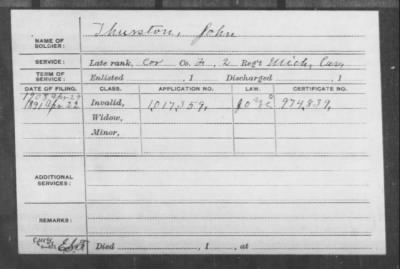 NAME OF SOLDIER: Thurston, John
SERVICE: Late rank, Cor Co. F, 2 Reg't Mich. Cav.
TERM OF SERVICE: Enlisted , 1 Discharged , 1
DATE OF FILING. CLASS. APPLICATION NO. LAW. CERTIFICATE NO.
1891 Apr. 22 Invalid, 1,017,359, 974,839,
Widow,
Minor,
ADDITIONAL SERVICES:
REMARKS:
Died , 1 , at